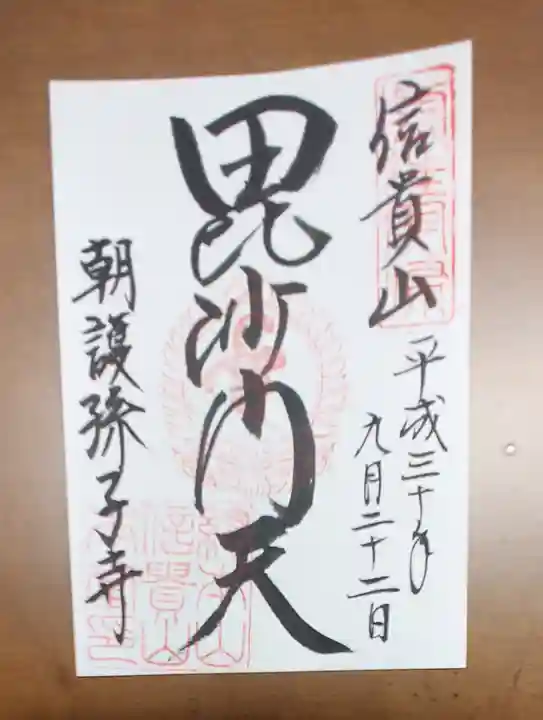 信貴山
平成三十年
九月二十二日
毘沙門天
朝護孫子寺